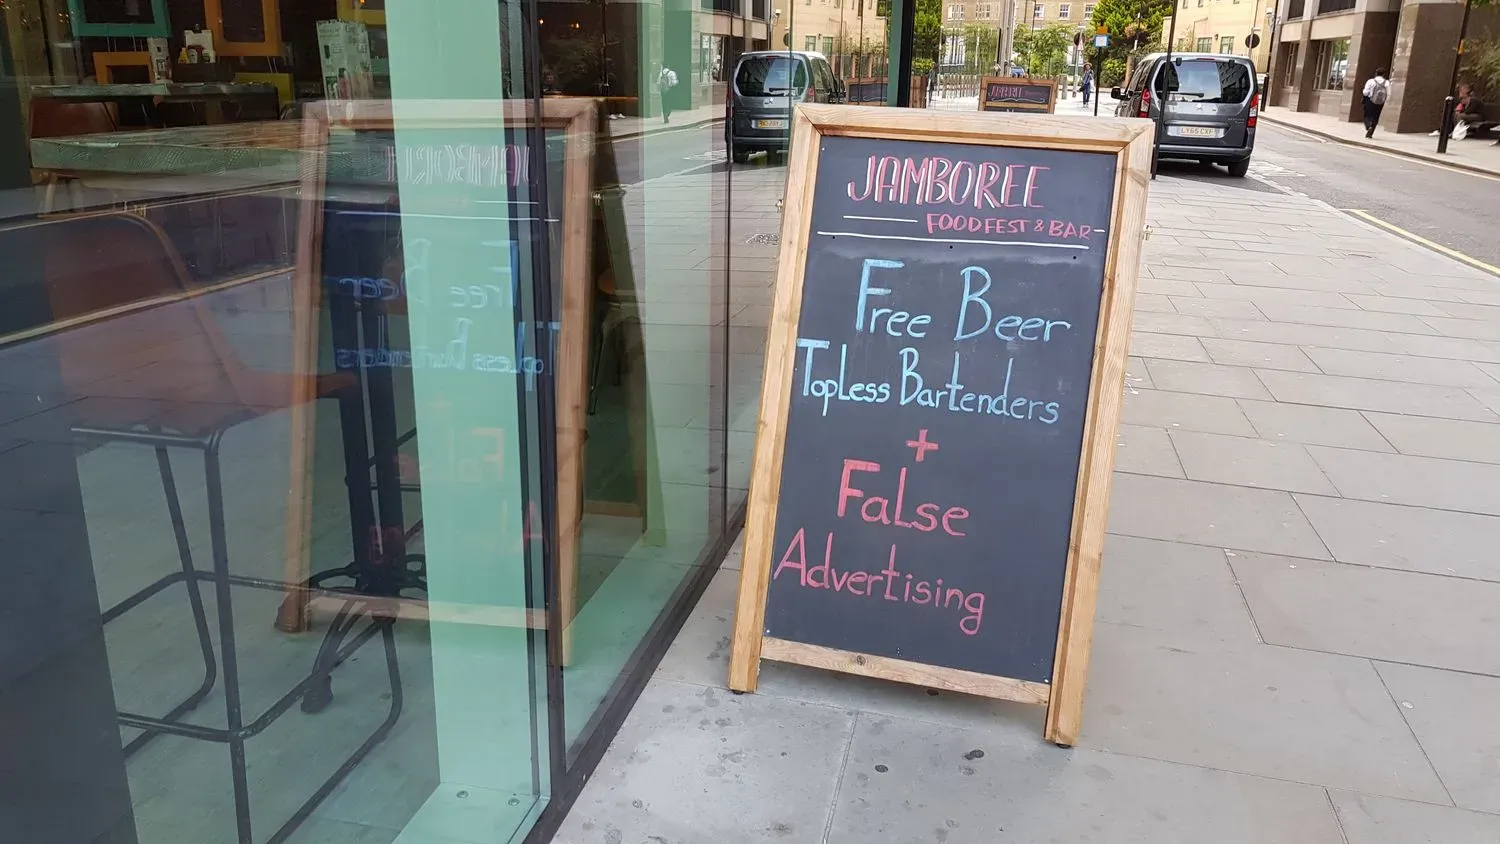 JAMBOREE
FOODFEST & BAR
Free Beer
Topless Bartenders
+
False
Advertising
JAMBOREE
LY65 CXF